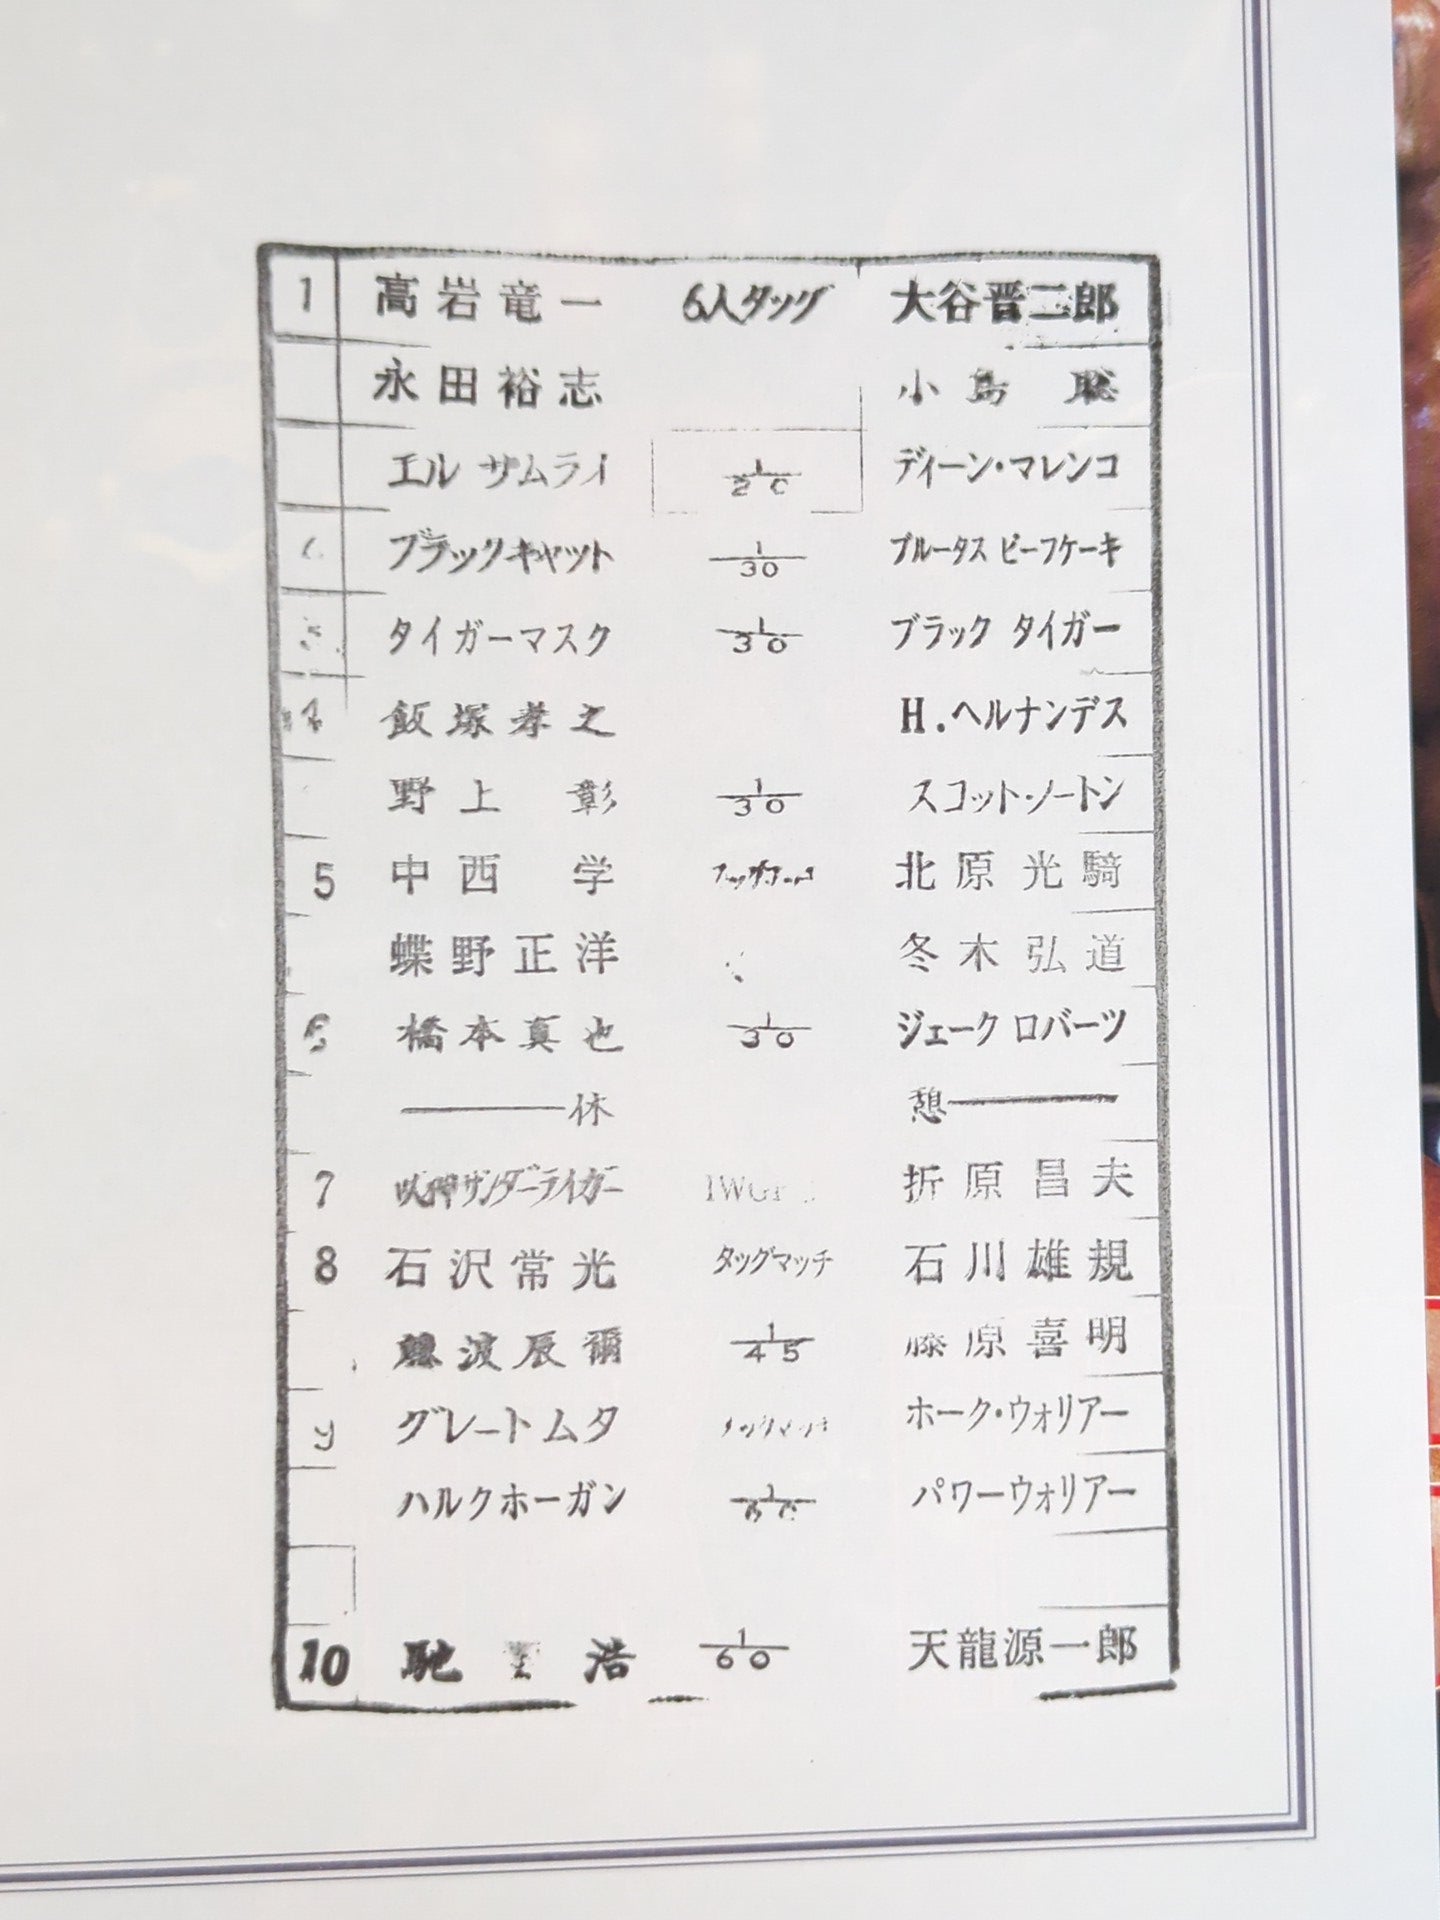 1 高岩竜一 6人タッグ 大谷晋二郎
永田裕志 小島 聡
エル サムライ 1/20 ディーン・マレンコ
ブラックキャット 1/30 ブルータス ビーフケーキ
3 タイガーマスク 1/30 ブラック タイガー
4 飯塚孝之 H.ヘルナンデス
野上 彰 1/30 スコット・ノートン
5 中西 学 北原光騎
蝶野正洋 冬木弘道
6 橋本真也 1/30 ジェーク ロバーツ
休 憩
7 獣神サンダーライガー IWGP 折原昌夫
8 石沢常光 タッグマッチ 石川雄規
藤波辰爾 1/45 藤原喜明
9 グレートムタ タッグマッチ ホーク・ウォリアー
ハルクホーガン 1/60 パワーウォリアー
10 馳 浩 1/60 天龍源一郎